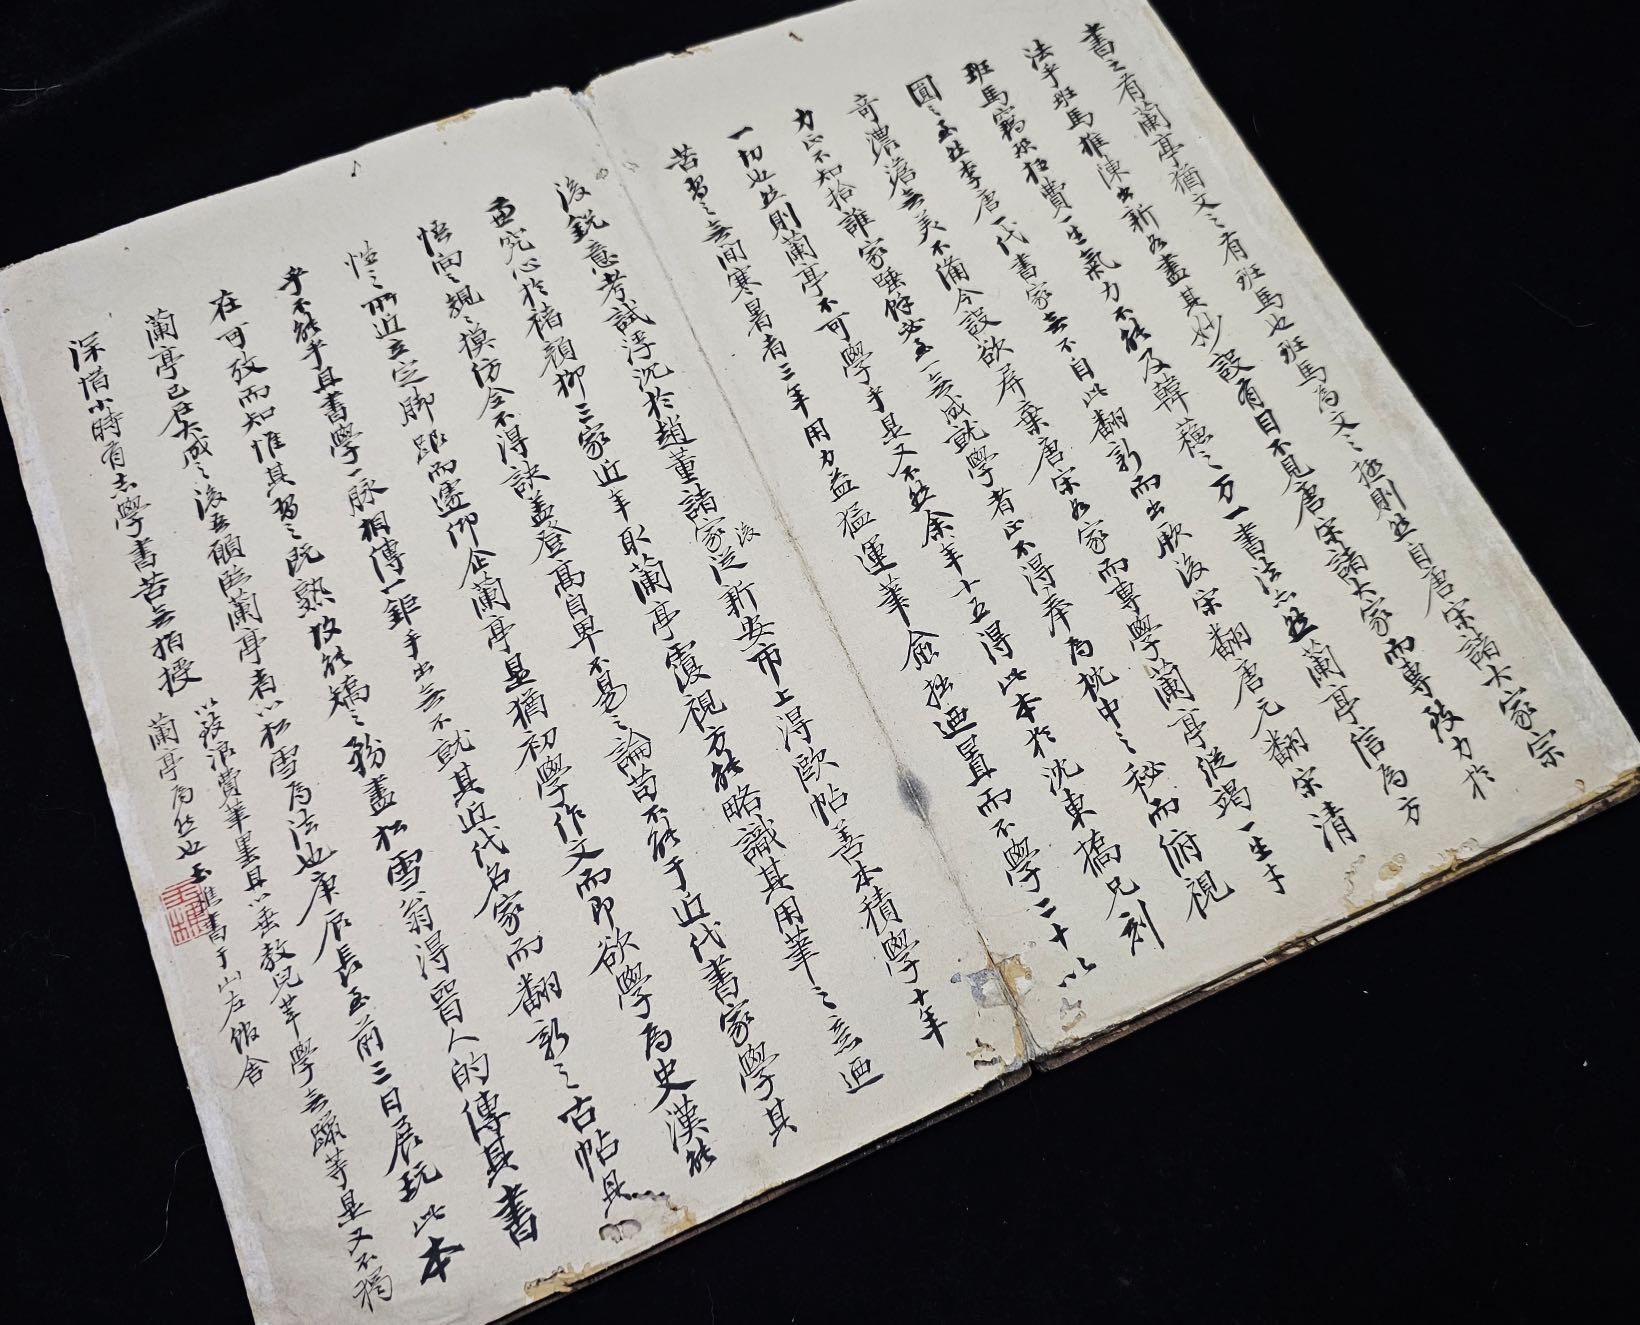 書之有蘭亭猶文之有班馬也班馬為文之極則然自唐宋諸大家宗
法乎班馬推陳出新各盡其妙設有目不見唐宋諸大家而專致力於
班馬竊恐枉費一生氣力不能及韓蘇之万一書法亦然蘭亭信為方
圓之至然李唐一代書家無不自此翻新而出厥後宋翻唐元翻宋清
奇濃澹無美不備今設欲屏棄唐宋各家而專學蘭亭縱竭一生才
力亦不知拾誰家唾餘必至一無成就學者亦不得奉為枕中之秘而俯視
一切也然則蘭亭不可學乎是又不然余年十五得此本於沈東橋兄刻
苦習之無间寒暑者三年用力益猛運筆愈拙迺置而不學二十以
後銳意考試浮沉於趙董諸家後從新安市上得歐帖善本積學十年
面究心於褚顏柳三家近年取蘭亭覆視方能略識其用筆之意迺
悟向之規之摸仿全不得訣蓋登高自卑不易之論苟不能于近代書家學其
性之所近立定脚跟而遽仰企蘭亭是猶初學作文而即欲學為史漢能
乎不能乎且書學一脉相傳一鉅手出無不就其近代名家而翻新之古帖具
在可攷而知惟其習之既熟故能矯之務盡松雪翁得晉人的傳其書
蘭亭已在大成之後吾願臨蘭亭者以松雪為法也庚辰長至前三日展玩此本
深惜小時有志學書苦無指授以致浪費筆墨且以垂教兒輩學無躐等是又不獨
蘭亭為然也玉樵書于山左館舍